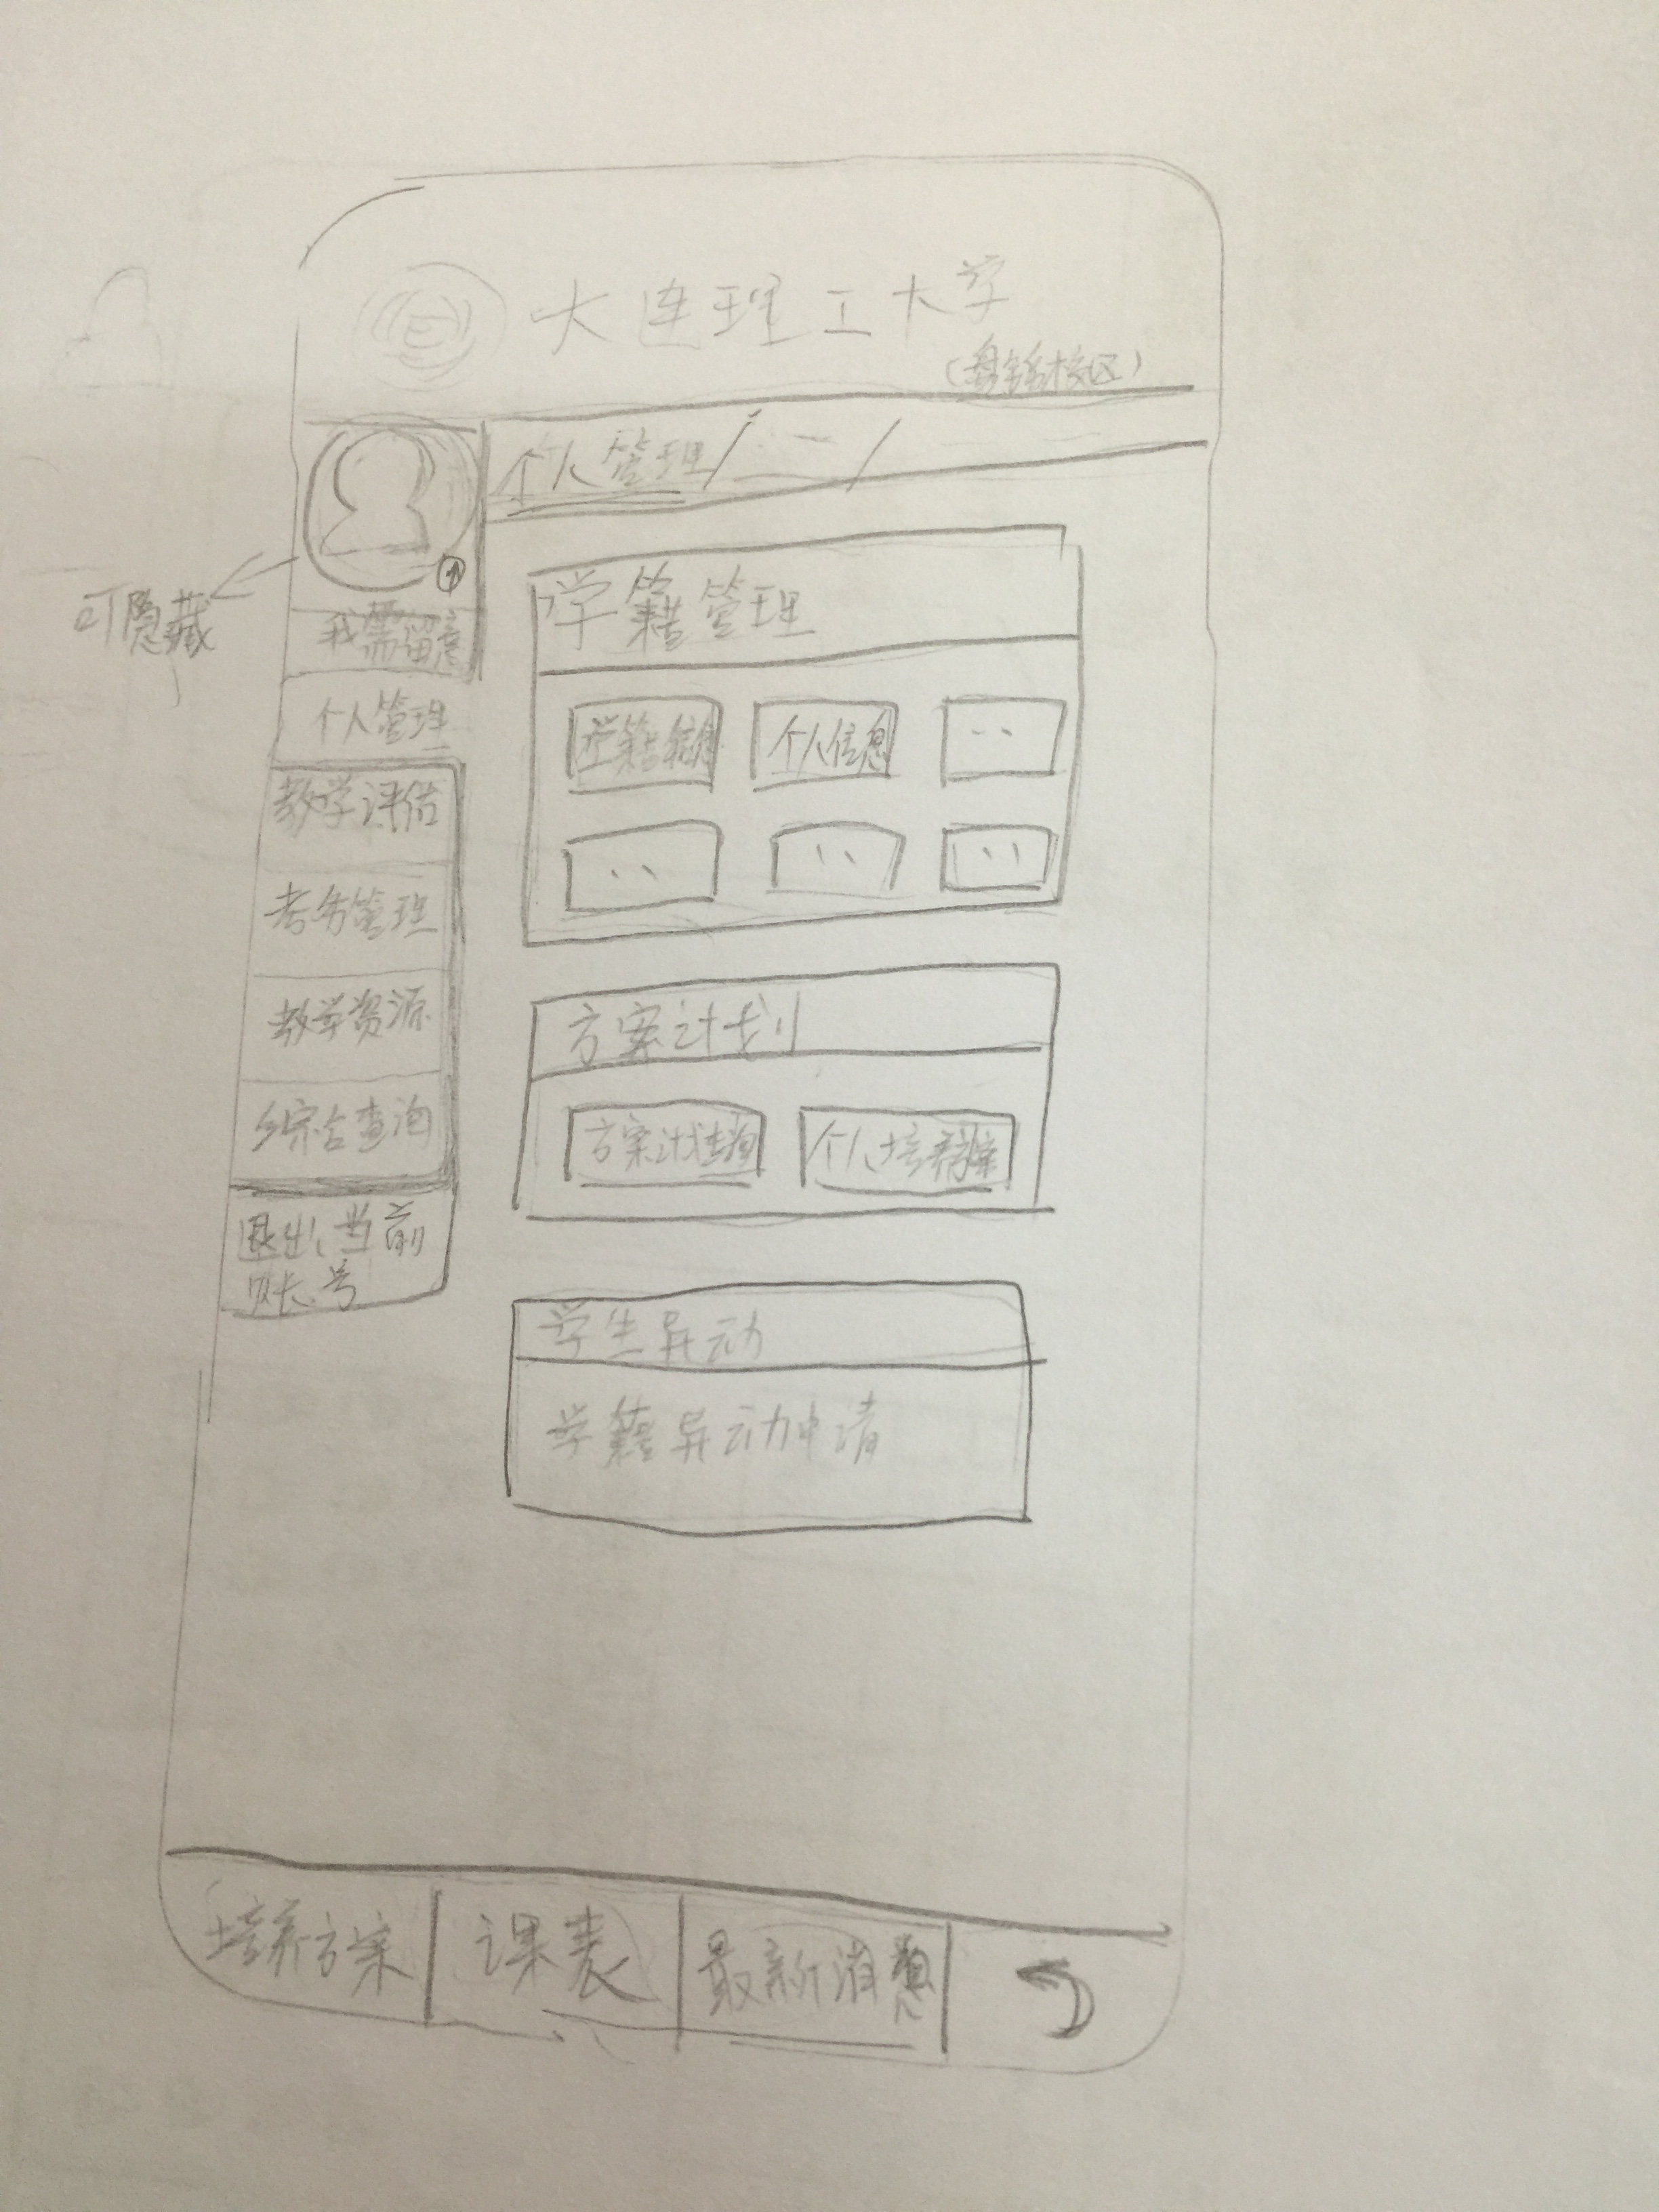 大连理工大学
(盘锦校区)
个人管理/
可隐藏
我需留意
个人管理
教学评估
考务管理
教学资源
综合查询
退出当前
账号
学籍管理
学籍信息
个人信息
方案计划
方案计划查询
个人培养方案
学生异动
学籍异动申请
培养方案
课表
最新消息